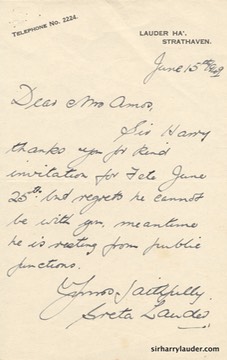 TELEPHONE NO. 2224.
LAUDER HA',
STRATHAVEN.
June 15th 1949
Dear Mrs Amos,
Sir Harry
thanks you for kind
invitation for Fete June
25th, but regrets he cannot
be with you, meantime
he is resting from public
functions.
Yours faithfully,
Greta Lauder.
sirharrylauder.com